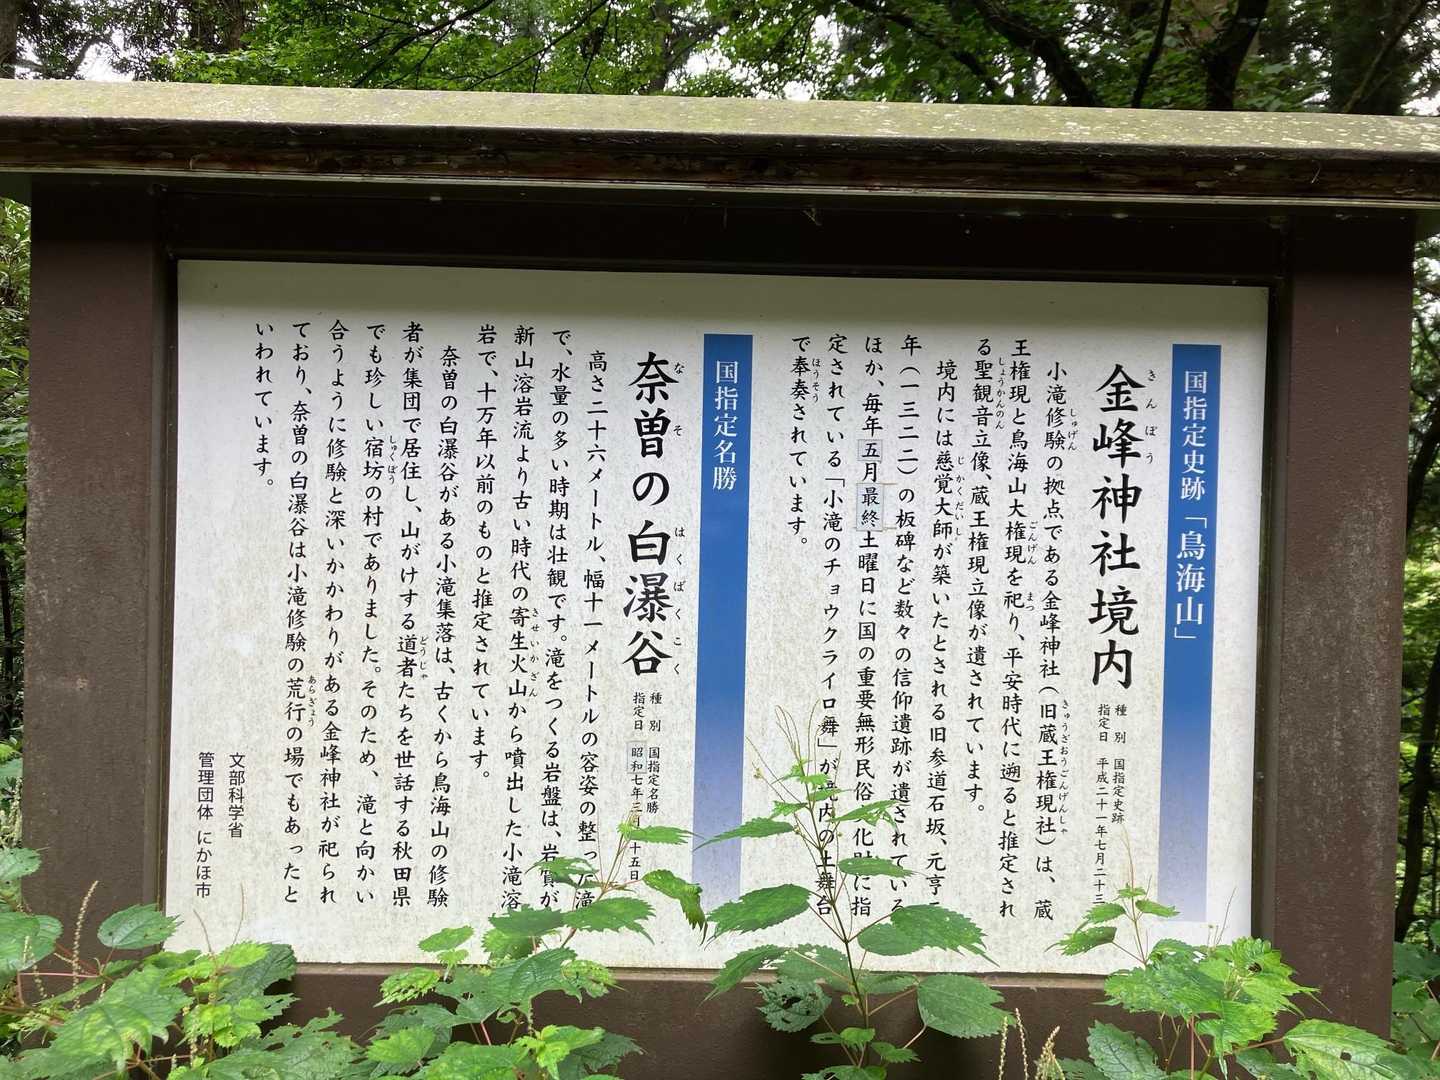 国指定史跡「鳥海山」
金峰神社境内
きんぽう
種 別 国指定史跡
指定日 平成二十一年七月二十三
小滝修験の拠点である金峰神社(旧蔵王権現社)は、蔵
しゅげん
きゅうざおうごんげんしゃ
王権現と鳥海山大権現を祀り、平安時代に遡ると推定され
ごんげん
まつ
る聖観音立像、蔵王権現立像が遺されています。
しょうかんのん
境内には慈覚大師が築いたとされる旧参道石坂、元亨二
じかくだいし
年(一三二二)の板碑など数々の信仰遺跡が遺されている
ほか、毎年五月最終土曜日に国の重要無形民俗文化財に指
定されている「小滝のチョウクライロ舞」が境内の土舞台
で奉奏されています。
ほうそう
国指定名勝
奈曽の白瀑谷
なそ
はくばくこく
種 別 国指定名勝
指定日 昭和七年三月 十五日
高さ二十六メートル、幅十一メートルの容姿の整った滝
で、水量の多い時期は壮観です。滝をつくる岩盤は、岩質が
新山溶岩流より古い時代の寄生火山から噴出した小滝溶
きせいかざん
岩で、十万年以前のものと推定されています。
奈曽の白瀑谷がある小滝集落は、古くから鳥海山の修験
者が集団で居住し、山がけする道者たちを世話する秋田県
どうじゃ
でも珍しい宿坊の村でありました。そのため、滝と向かい
しゅくぼう
合うように修験と深いかかわりがある金峰神社が祀られ
ており、奈曽の白瀑谷は小滝修験の荒行の場でもあったと
あらぎょう
いわれています。
文部科学省
管理団体 にかほ市